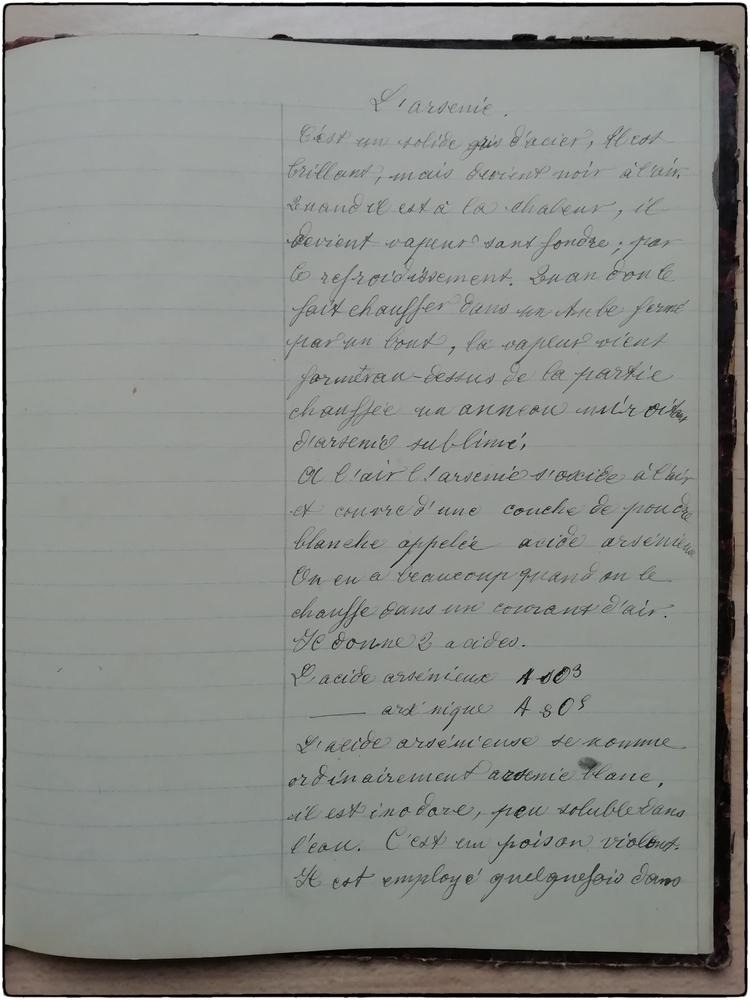 L'arsenic.
C'est un solide gris d'acier, Il est
brillant, mais devient noir à l'air.
Quand il est à la chaleur, il
devient vapeur sans fondre ; par
le refroidissement. Quan don le
fait chauffer dans un tube fermé
par un bout, la vapeur vient
former au-dessus de la partie
chauffée un anneau miroitant
d'arsenic sublimé.
A l'air l'arsenic s'oxide à l'air
et couvre d'une couche de poudre
blanche appelée acide arsénieux
On en a beaucoup quand on le
chauffe dans un courant d'air.
Il donne 2 acides.
L'acide arsénieux AsO3
—— arsénique AsO5
L'acide arsénieuse se nomme
ordinairement arsenic blanc,
il est inodore, peu soluble dans
l'eau. C'est un poison violent.
Il est employé quelquefois dans